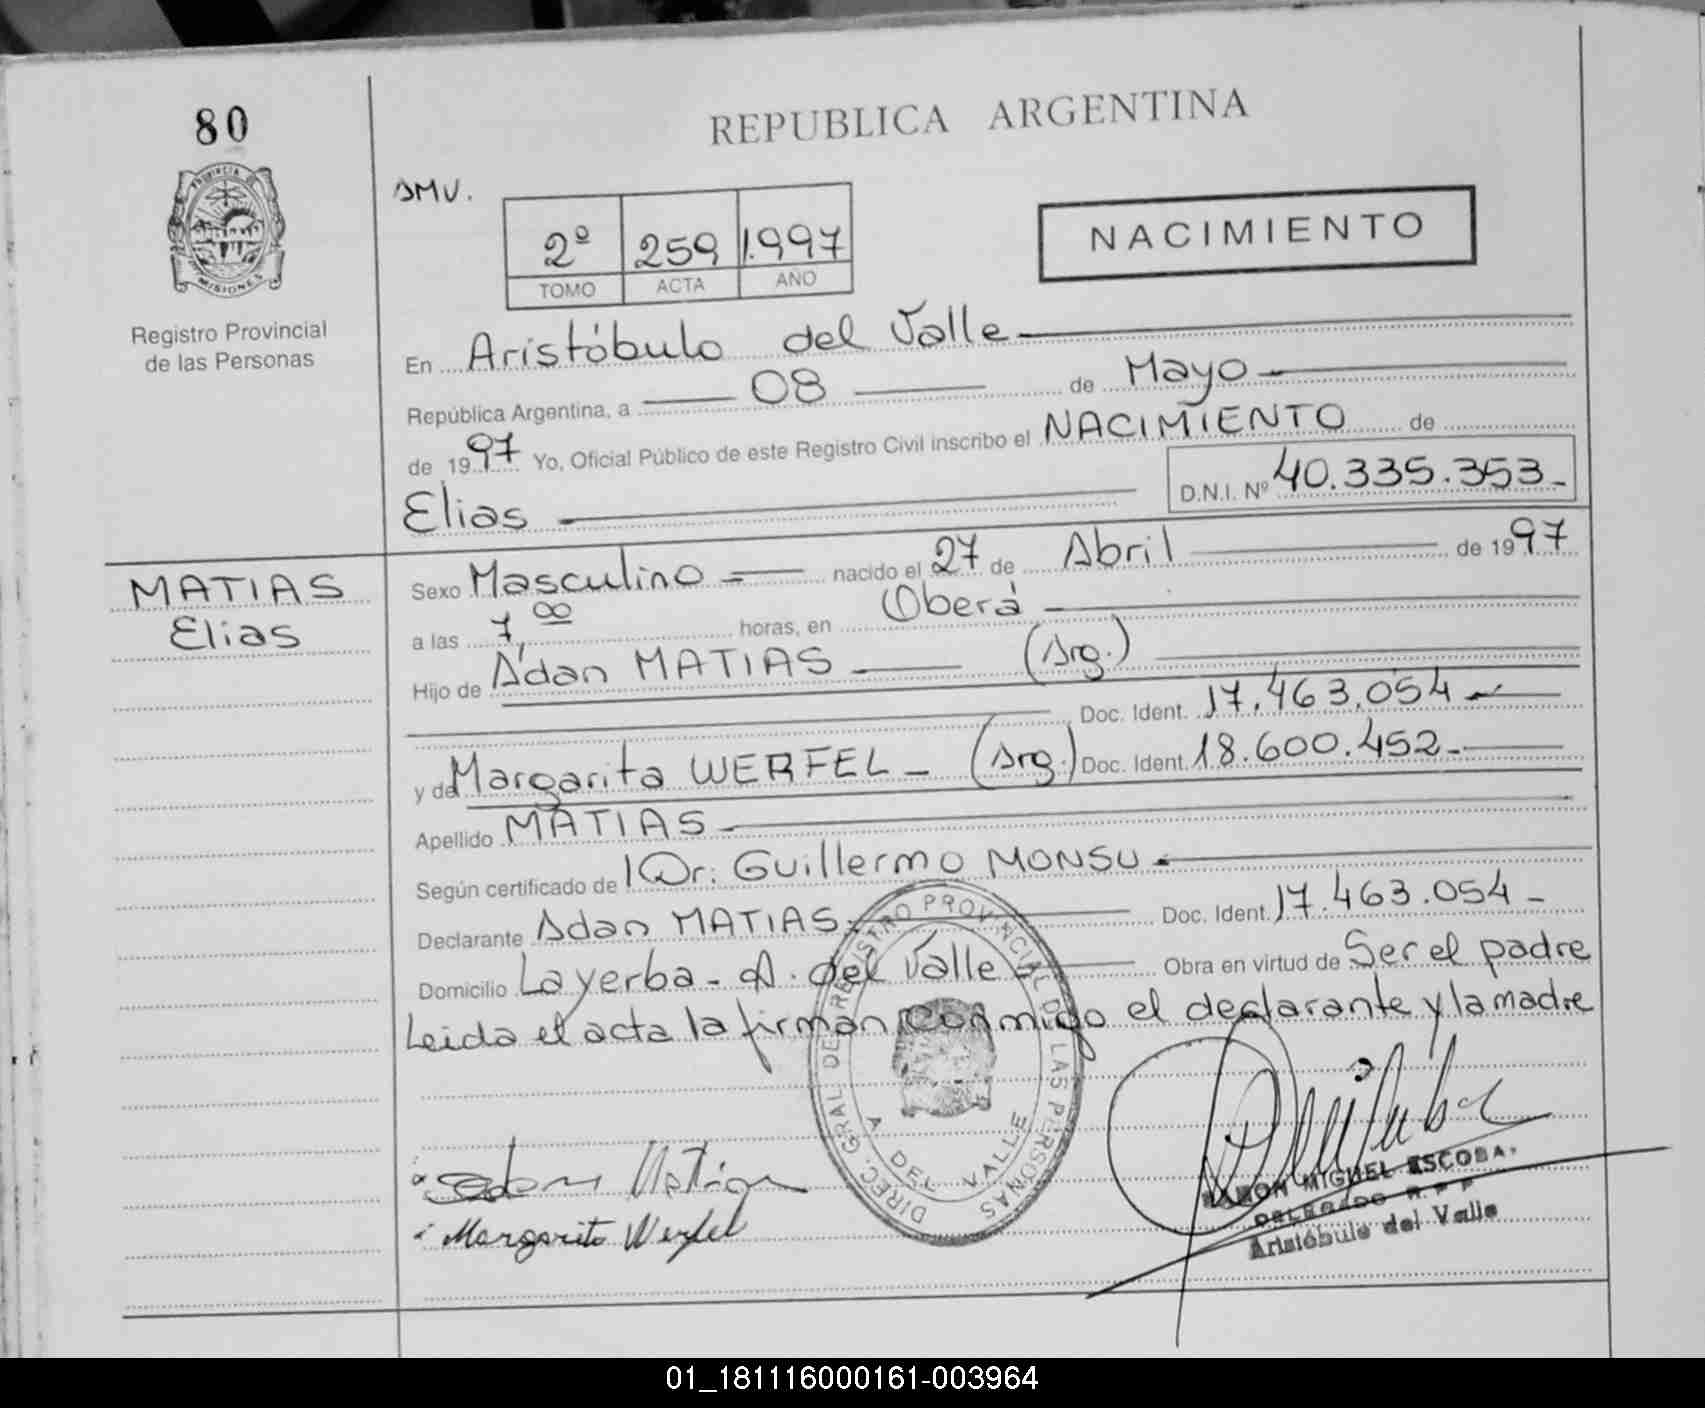 80
REPUBLICA ARGENTINA
PROVINCIA DE
MISIONES
Registro Provincial
de las Personas
SMV.
2º 259 1.997
TOMO ACTA AÑO
NACIMIENTO
En Aristóbulo del Valle
República Argentina, a 08 de Mayo
de 1997 Yo, Oficial Público de este Registro Civil inscribo el NACIMIENTO de
Elias D.N.I. Nº 40.335.353
MATIAS
Elias
Sexo Masculino nacido el 27 de Abril de 1997
a las 7,00 horas, en Oberá
Hijo de Adan MATIAS (Arg.)
Doc. Ident. 17.463.054
y de Margarita WERFEL (Arg.) Doc. Ident. 18.600.452
Apellido MATIAS
Según certificado de Dr: Guillermo MONSU
Declarante Adan MATIAS Doc. Ident. 17.463.054
Domicilio La yerba - A. del Valle Obra en virtud de Ser el padre
Leida el acta la firman conmigo el declarante y la madre
DIREC. GRAL DE REGISTRO PROVINCIAL DE LAS PERSONAS
A DEL VALLE
Adan Matias
Margarita Werfel
RAMON MIGUEL ESCOBA
DELEGADO R.P.P
Aristóbulo del Valle
01_181116000161-003964